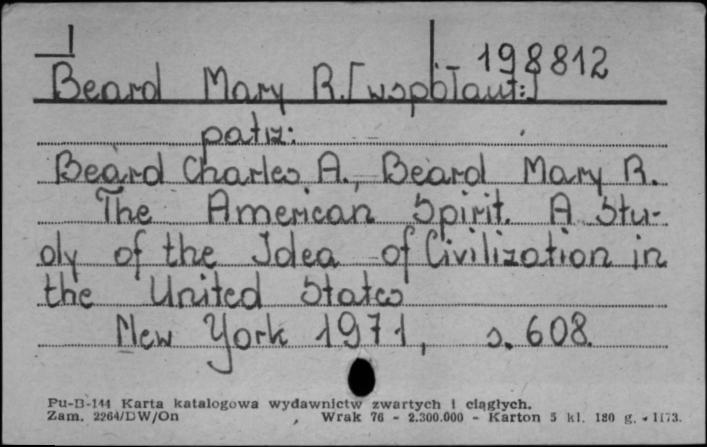 198812
Beard Mary R. [współaut:]
patrz:
Beard Charles A., Beard Mary R.
The American Spirit. A Stu-
dy of the Idea of Civilization in
the United States
New York 1971, s. 608.
Pu-B-144 Karta katalogowa wydawnictw zwartych i ciągłych.
Zam. 2264/DW/On Wrak 76 - 2.300.000 - Karton 5 kl. 180 g. - 1173.